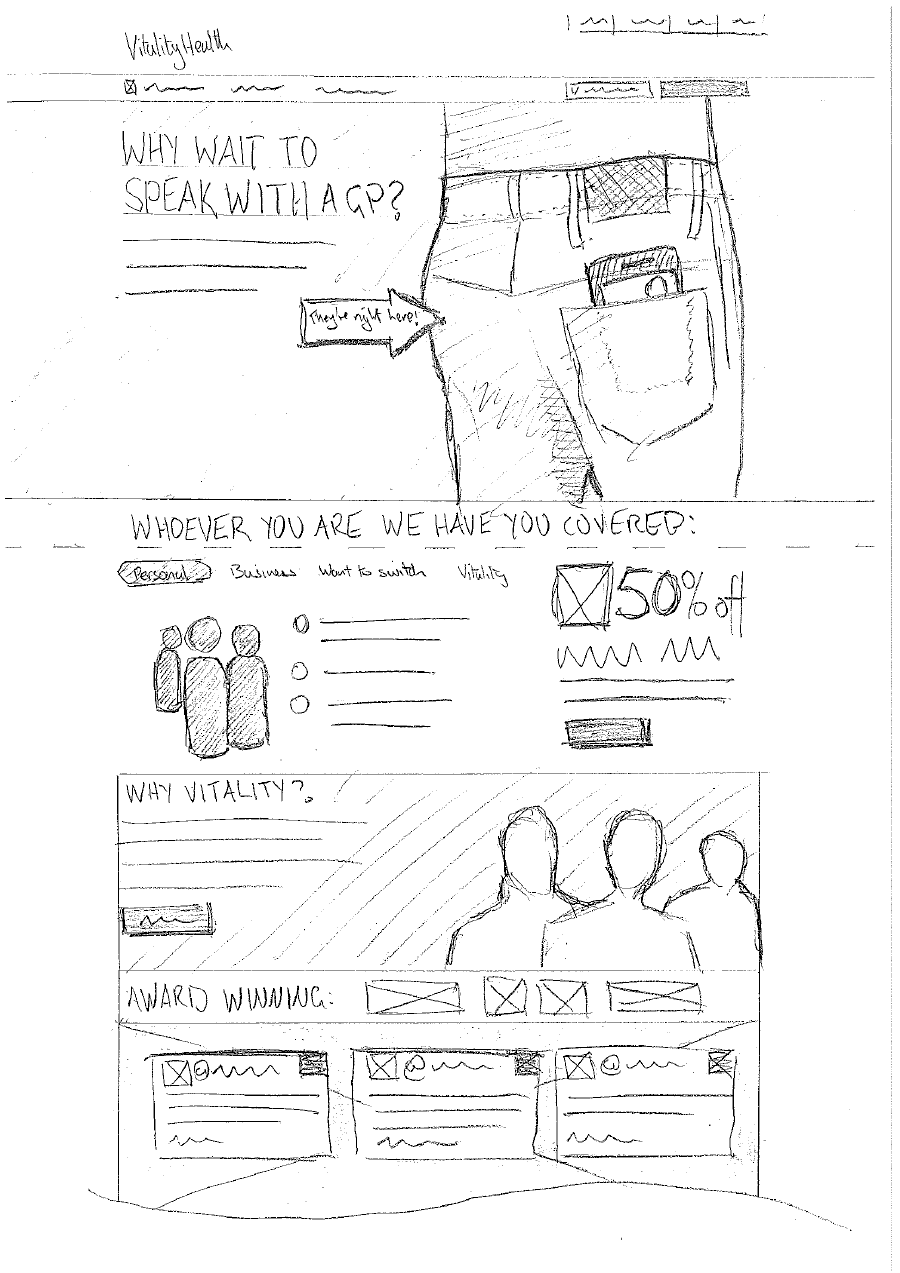 VitalityHealth
WHY WAIT TO
SPEAK WITH A GP?
They're right here!
WHOEVER YOU ARE WE HAVE YOU COVERED:
Personal Business Want to switch Vitality
50% off
WHY VITALITY?
AWARD WINNING:
@
@
@